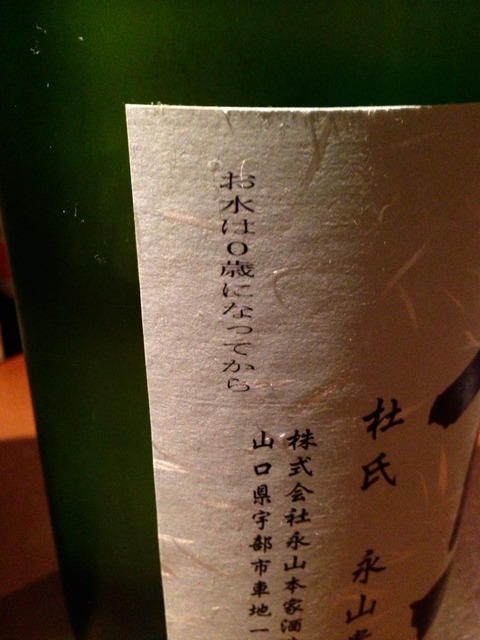 杜氏 永山
株式会社永山本家酒
山口県宇部市車地一
お水は0歳になってから